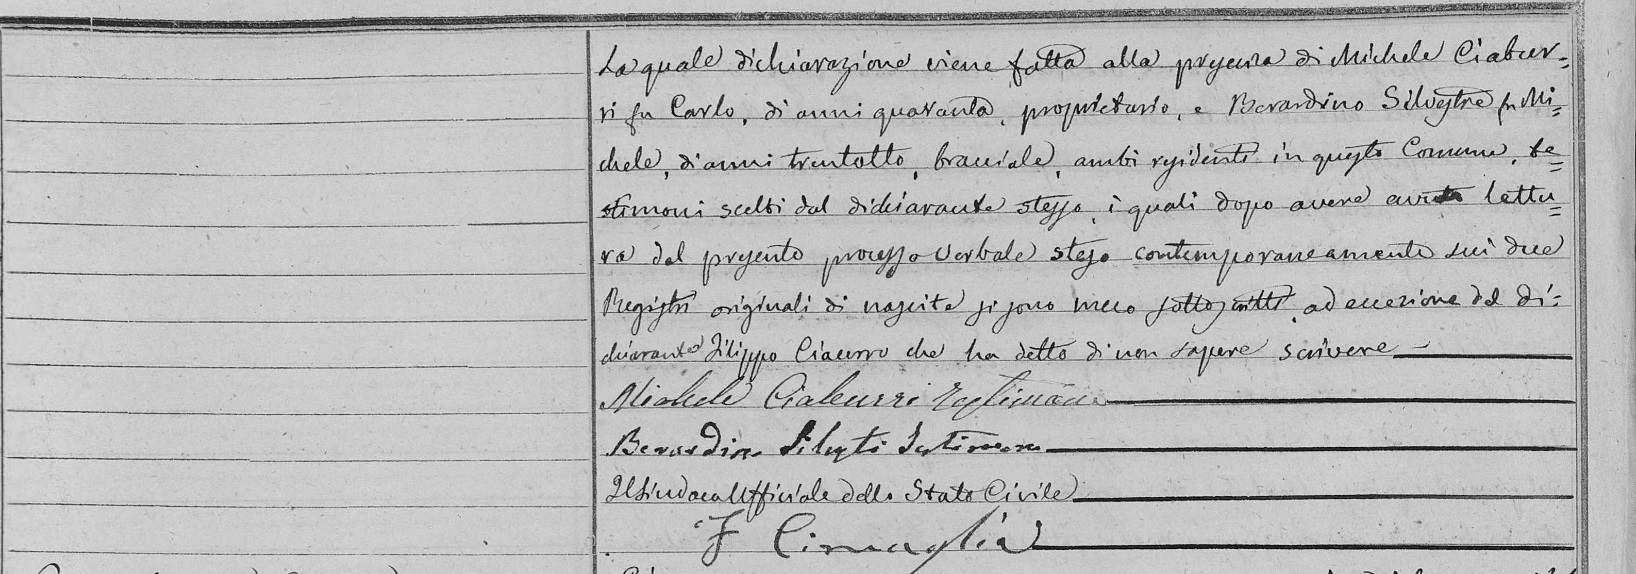 La quale dichiarazione viene fatta alla presenza di Michele Ciabur=
ri fu Carlo, di anni quaranta, proprietario, e Berardino Silvestre fu Mi=
chele, di anni trentotto, bracciale, ambi residenti in questo Comune, te=
stimoni scelti dal dichiarante stesso, i quali dopo avere avuto lettu=
ra del presente processo verbale steso contemporaneamente sui due
Registri originali di nascita si sono meco sottoscritti, ad eccezione del di=
chiarante Filippo Ciacurro che ha detto di non sapere scrivere
Michele Ciaburri Testimone
Berardino Silvestri Testimone
Il Sindaco Uffiziale dello Stato Civile
F Cimaglia